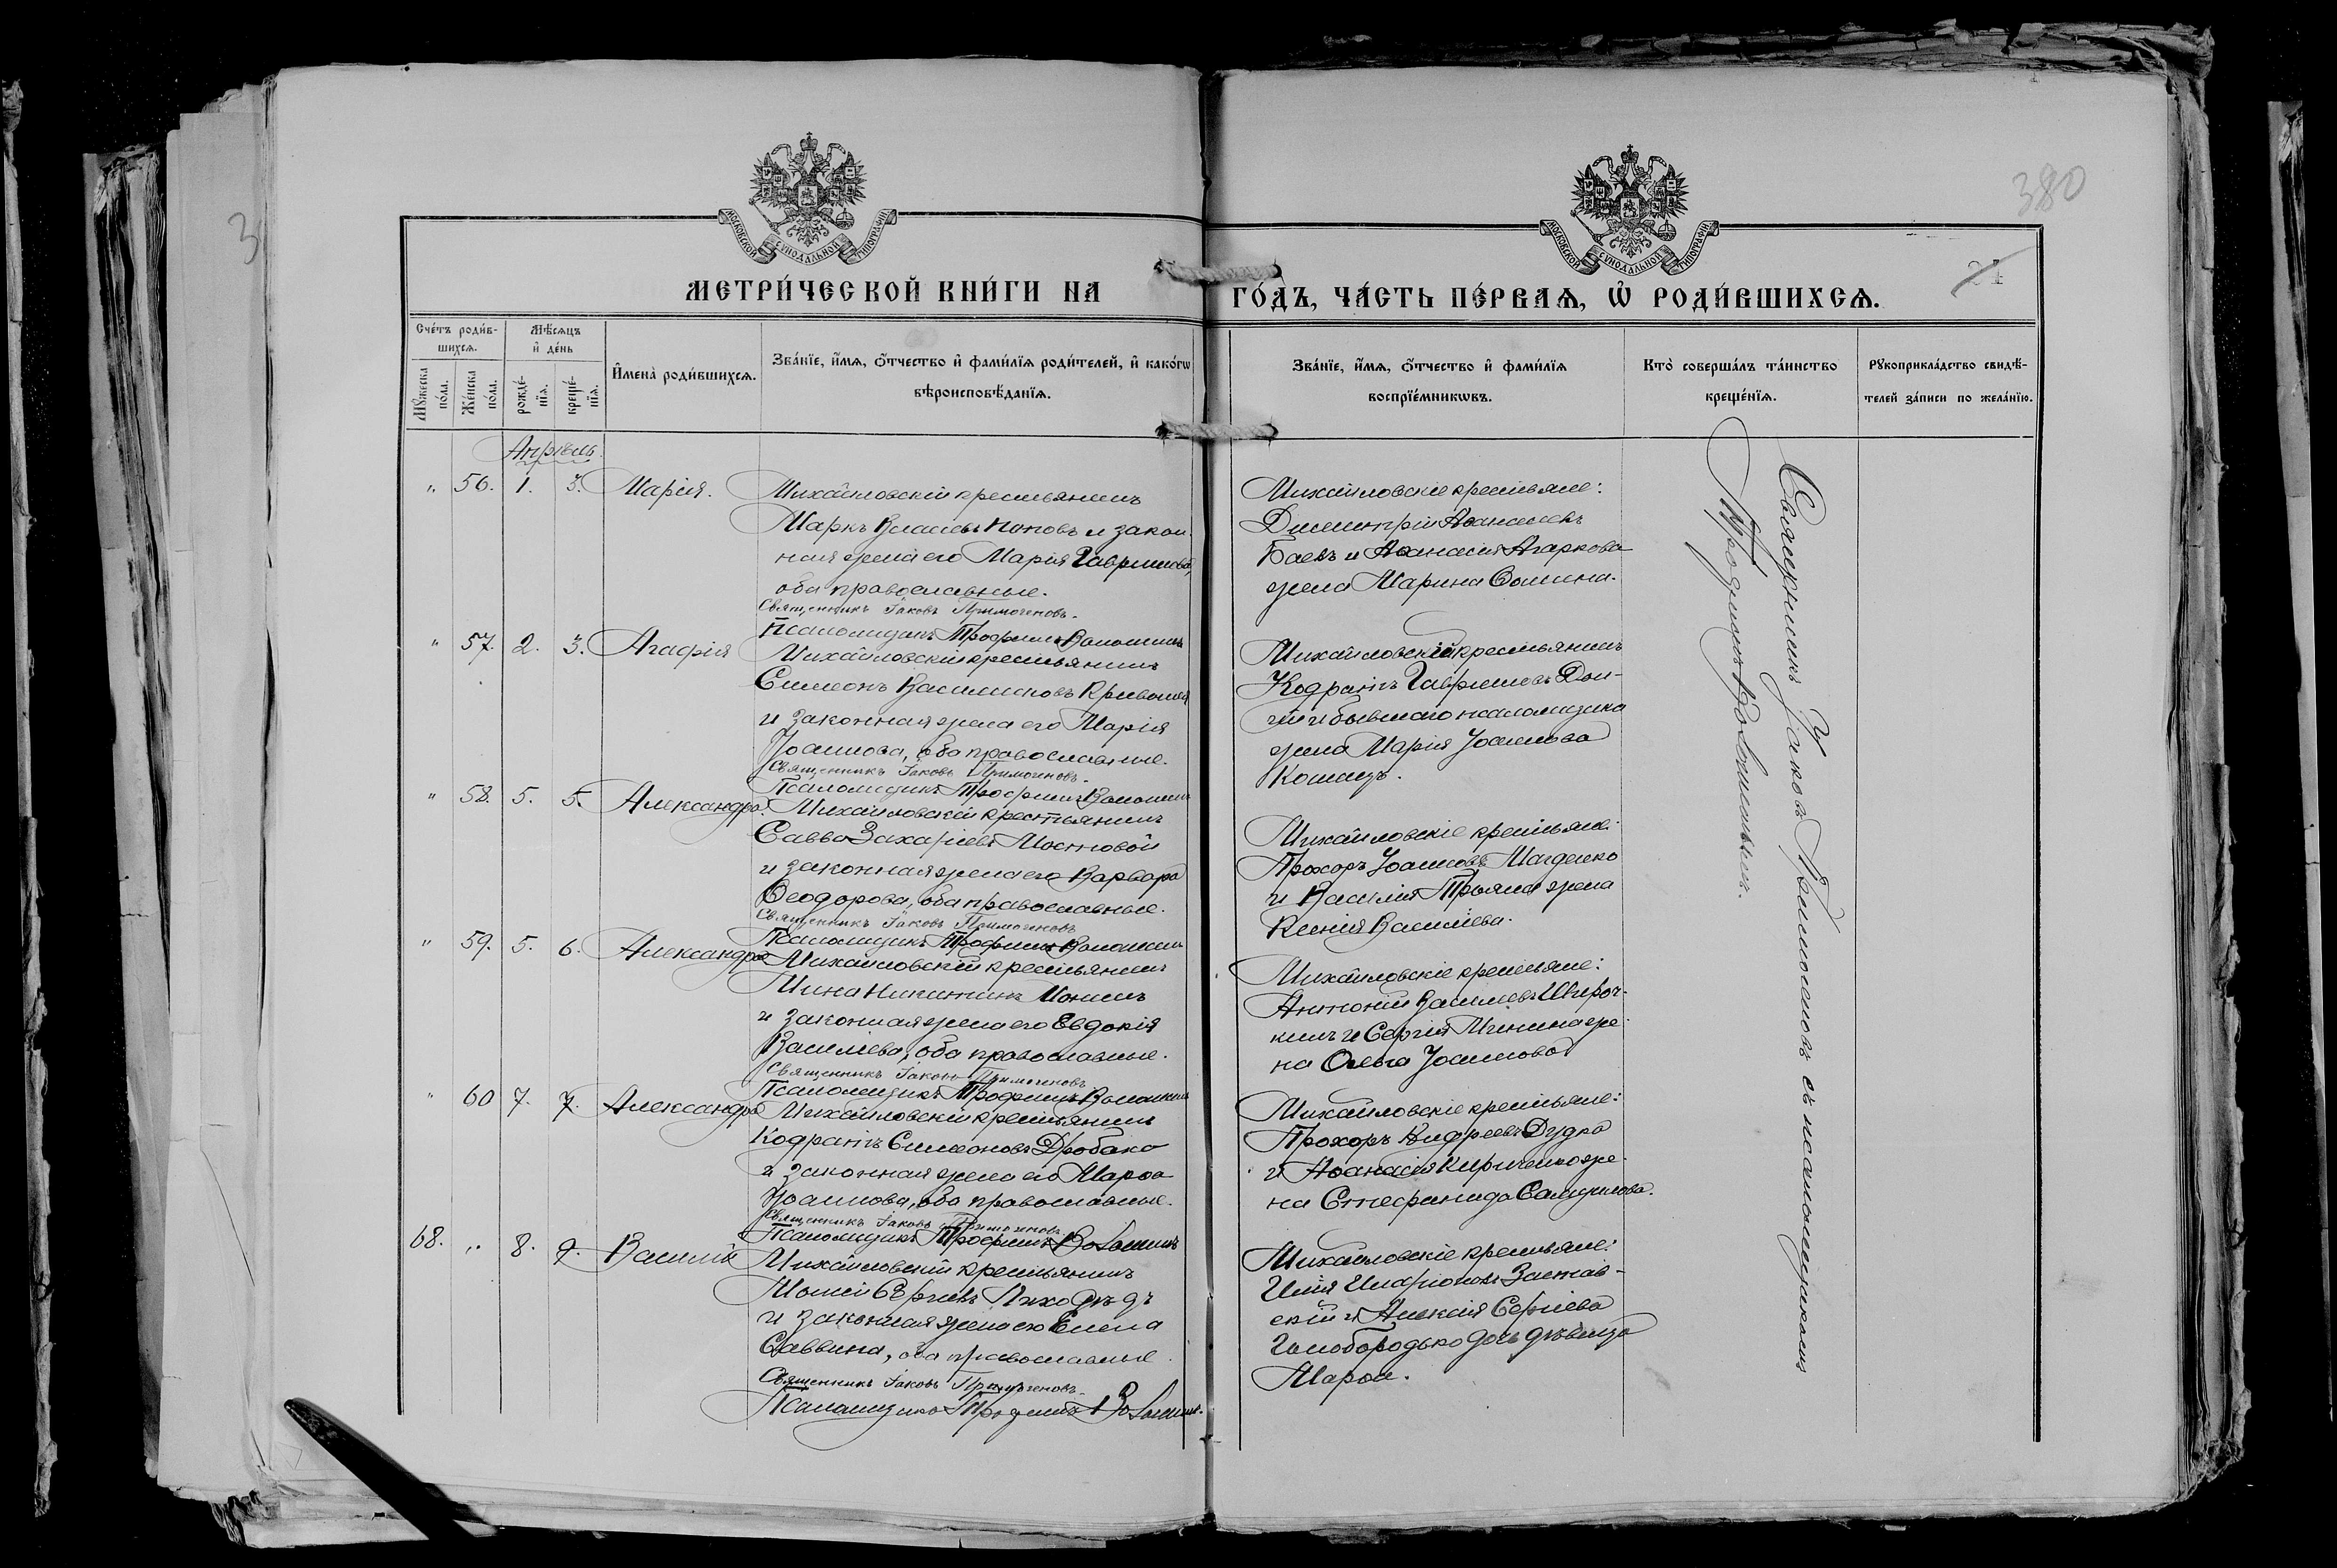 380
МОСКОВСКОЙ СУНОДАЛЬНОЙ ТИПОГРАФІИ
МОСКОВСКОЙ СУНОДАЛЬНОЙ ТИПОГРАФІИ
21
МЕТРИ́ЧЕСКОЙ КНИ́ГИ НА
ГО́ДЪ, ЧА́СТЬ ПЕ́РВАѦ, Ѡ҆ РОДИ́ВШИХСѦ.
Сче́тъ роди́в-
шихсѧ.
Мѣ́сѧцъ
и҆ де́нь
Мꙋ́жеска
по́ла.
Же́нска
по́ла.
рожде́-
нїѧ.
креще́-
нїѧ.
И҆мена̀ роди́вшихсѧ.
Зва́нїе, и҆́мѧ, ѻ҆́тчество и҆ фами́лїѧ роди́телей, и҆ како́гѡ
вѣроисповѣ́данїѧ.
Зва́нїе, и҆́мѧ, ѻ҆́тчество и҆ фами́лїѧ
воспрїе́мникѡвъ.
Кто̀ соверша́лъ та́инство
креще́нїѧ.
Рꙋкоприкла́дство свидѣ́-
телей за́писи по жела́нїю.
Апрѣль.
" 56. 1. 3. Марія.
Михайловскій крестьянинъ
Маркъ Власіевъ Поповъ и закон-
ная жена его Марія Гавриилова,
оба православные.
Священникъ Іаковъ Примоченовъ.
Псаломщикъ Трофимъ Волошинъ
Михайловскіе крестьяне:
Димитрій Аѳанасіевъ
Баевъ и Аѳанасія Агаркова
жена Марина Ѳомина.
" 57. 2. 3. Агафія
Михайловскій крестьянинъ
Симеонъ Василисковъ
и законная жена его Марія
Іоаннова, оба православные.
Священникъ Іаковъ Примоченовъ.
Псаломщикъ Трофимъ Волошинъ
Михайловскій крестьянинъ
Кодратъ Гавриловъ
и бывшаго псаломщика
жена Марія Іоаннова
" 58. 5. 5. Александра.
Михайловскій крестьянинъ
Савва Захаріевъ Мостовой
и законная жена его Варвара
Ѳеодорова, оба православные.
Священникъ Іаковъ Примоченовъ
Псаломщикъ Трофимъ Волошинъ
Михайловскіе крестьяне:
Прохоръ Іоанновъ Магденко
и Василія жена
Ксенія Василіева.
" 59. 5. 6. Александра
Михайловскій крестьянинъ
Мина Никитинъ
и законная жена его Евдокія
Василіева, оба православные.
Священникъ Іаковъ Примоченовъ
Псаломщикъ Трофимъ Волошинъ
Михайловскіе крестьяне:
Антоній Василіевъ
и Сергія Минина же-
на Ольга Іоаннова
" 60 7. 7. Александра
Михайловскій крестьянинъ
Кодратъ Симеоновъ Дробако
и законная жена его Марѳа
Іоаннова, оба православные.
Священникъ Іаковъ Примоченовъ
Псаломщикъ Трофимъ Волошинъ
Михайловскіе крестьяне:
Прохоръ Андреевъ Дудка
и Аѳанасія Кириченко же-
на Стефанида Самуилова.
68. " 8. 9. Василій
Михайловскій крестьянинъ
Моисей Сергіевъ Лиходѣдъ
и законная жена его Елена
Саввина, оба православные.
Священникъ Іаковъ Примоченовъ.
Псаломщикъ Трофимъ Волошинъ.
Михайловскіе крестьяне:
Илія Иларіоновъ Застав-
скій и Алексія Сергіева
Голобородько дочь дѣвица
Марѳа.
Священникъ Іаковъ Примоченовъ съ псаломщикомъ
Трофимомъ Волошинымъ.